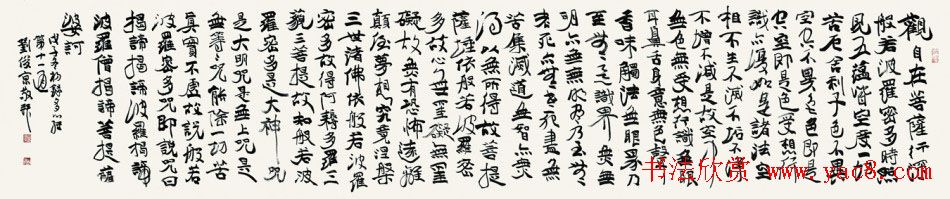 觀自在菩薩行深
般若波羅密多時照
見五蘊皆空度一切
苦厄舍利子色不異
空空不異色色即是
空空即是色受想行
識亦復如是諸法空
相不生不滅不垢不淨
不增不減是故空中無
色無受想行識無眼
耳鼻舌身意無色聲
香味觸法無眼界乃
至無意識界無無
明亦無無明盡乃至無
老死亦無老死盡無
苦集滅道無智亦無
得以無所得故菩提
薩埵依般若波羅密
多故心無罣礙無罣
礙故無有恐怖遠離
顛倒夢想究竟涅槃
三世諸佛依般若波羅
密多故得阿耨多羅
三藐三菩提故知般若波
羅密多是大神咒
是大明咒是無上咒是
無等等咒能除一切苦
真實不虛故說般若
波羅密多咒即說咒曰
揭諦揭諦波羅揭諦
波羅僧揭諦菩提薩
婆訶
戊子年初
第十二通
劉俊京敬書
书法欣赏 www.yac8.com